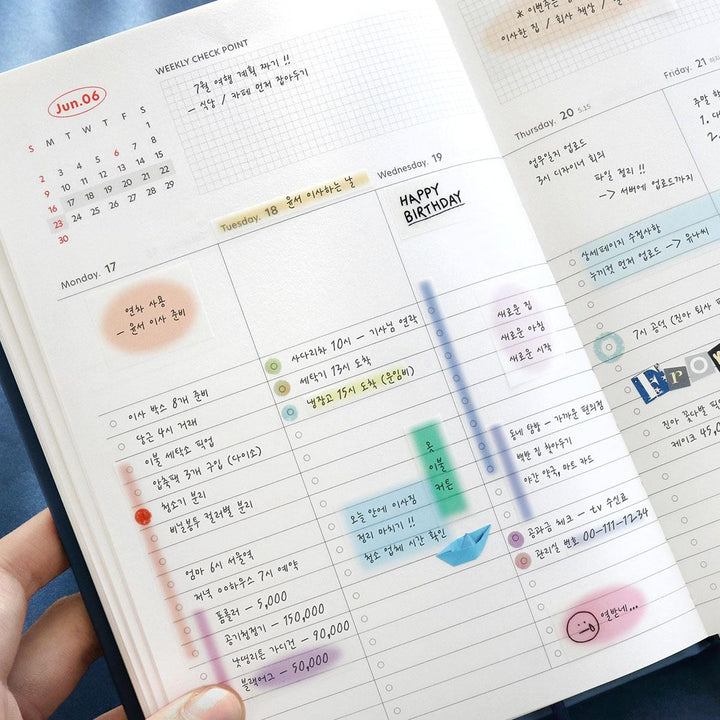 WEEKLY CHECK POINT
Jun.06
S M T W T F S
1
2 3 4 5 6 7 8
9 10 11 12 13 14 15
16 17 18 19 20 21 22
23 24 25 26 27 28 29
30
7월 여행 계획 짜기 !!
- 식당 / 카페 먼저 잡아두기
Monday. 17
연차 사용
- 윤서 이사 준비
이사 박스 8개 준비
당근 4시 거래
이불 세탁소 픽업
압축팩 3개 구입 (다이소)
청소기 분리
비닐봉투 컬러별 분리
엄마 6시 서울역
저녁 00하우스 7시 예약
폼롤러 - 5,000
공기청정기 - 150,000
낫띵리튼 가디건 - 90,000
블랙어그 - 50,000
Tuesday. 18 윤서 이사하는 날
사다리차 10시 - 기사님 연락
세탁기 13시 도착
냉장고 15시 도착 (운임비)
옷
이불
커튼
오늘 안에 이사짐
정리 마치기 !!
청소 업체 시간 확인
Wednesday. 19
HAPPY
BIRTHDAY
새로운 집
새로운 아침
새로운 시작
동네 탐방 - 가까운 편의점
백반 집 찾아두기
야간 약국, 마트 카드
공과금 체크 - tv 수신료
관리실 번호 00-111-1234
열받네...
* 이번주는
이사한 집 / 회사 책상 /
Thursday. 20 5.15
업무일지 업로드
3시 디자이너 회의
파일 정리 !!
-> 서버에 업로드까지
상세페이지 수정사항
누끼컷 먼저 업로드 -> 유나씨
7시 공덕 (진아 퇴사
FroM
진아 꽃다발 픽업
케이크 45,0
Friday. 21
주말
1.
2.